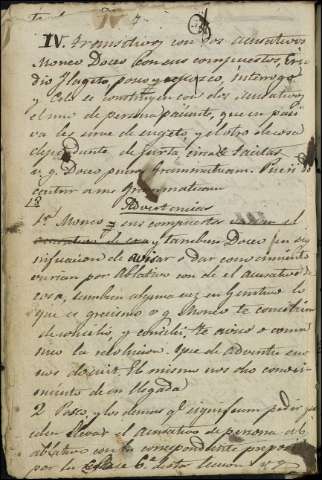 IV. Transitivos con dos acusativos
Moneo Doceo con sus compuestos, Eru
dio Flagito, posco y reposco, interrogo
y Celo se constituyen con dos acusativos
el uno de persona paciente, que en pasi
va les sirve de sugeto, y el otro de cosa
dependiente de
v. g. Doceo pueros Grammaticam. Pueri do
centur a me Grammaticam
13
Advertencias
1ª Moneo y sus compuestos varian el
acusativo de cosa y tambien Doceo en sig
nificacion de avisar o dar conocimiento
varian por Ablativo con de el acusativo de
cosa, tambien alguna vez en Genitivo lo
que es grecismo v. g. Moneo te consilium
de consilio, y consilii: te aviso o comu
nico la resolucion. Ipse de adventu suo
nos docuit. El mismo nos dio conoci
miento de su llegada
2. Posco, y los demas qe significan pedir pue
den llevar el acusativo de persona ab
ablativo con la correspondiente preposn
por la Clase 6ª de esta leccion v. g.